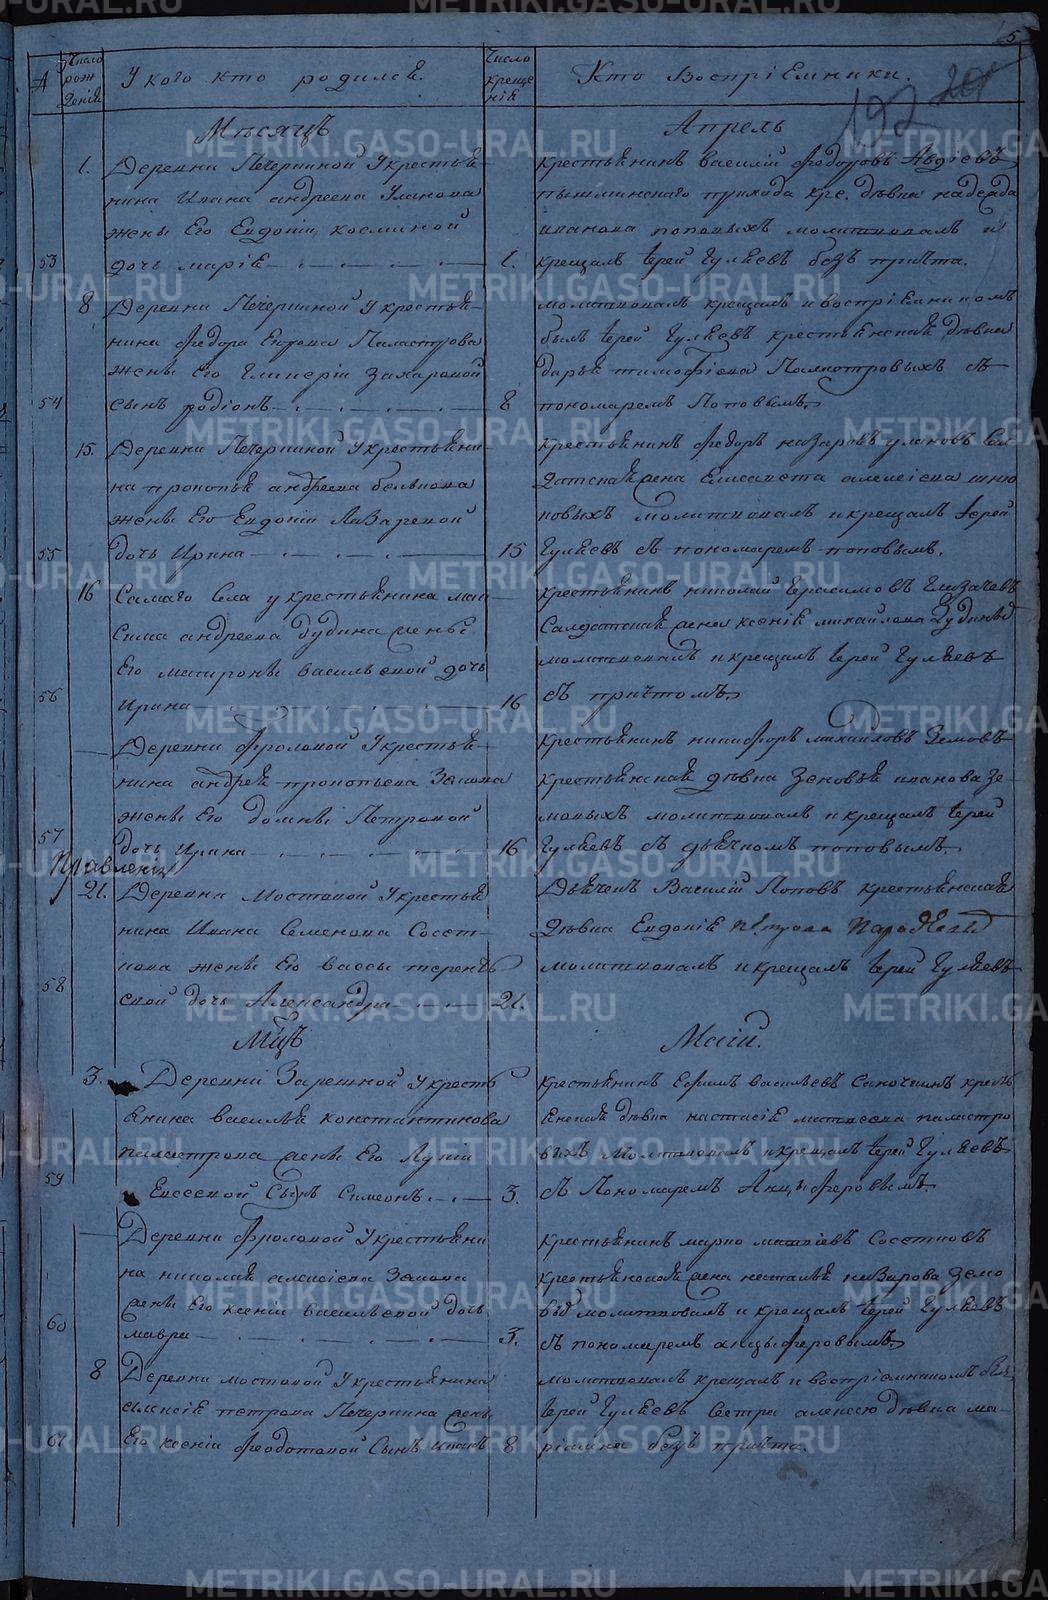 5
А
Число рождения
У кого кто родился.
Число крещенія
Кто Воспріемники.
192
Мѣсяцъ
Апрель
1. Деревни Печеркиной У крестья-
нина Ивана андреева Уланова
жены Его Евдокіи козминой
53 дочь марія 1.
крестьянинъ василій федоровъ Авдіевъ
пышминскаго прихода кре. дѣвка надежда
иванова поповыхъ молитвовалъ и
крещалъ Іерей Гуляевъ безъ причта.
8 Деревни Печеркиной У крестья-
нина федора Паластрова
жены Его Гликеріи Захаровой
54 сынъ родіонъ 8
молитвовалъ крещалъ и воспріемникомъ
былъ Іерей Гуляевъ крестьянская дѣвка
дарья тимофіева Паластровыхъ съ
пономаремъ Поповымъ.
15. Деревни Печеркиной У крестьяни-
на прокопья андреева белькова
жены Его Евдокіи Лазаревой
55 дочь Ирина 15
крестьянинъ федоръ назаровъ улановъ Сал
датская жена Елисавета алексіева
новыхъ молитвовалъ и крещалъ Іерей
Гуляевъ съ пономаремъ поповымъ.
16 Самаго Села у крестьянина мак
Сима андреева дудина жены
Его матроны васильевой дочь
56 Ирина 16
крестьянинъ николай Герасимовъ Глызачевъ
Салдатская жена ксенія михайлова Дудиныхъ
молитвовалъ и крещалъ Іерей Гуляевъ
съ причтомъ.
Деревни фроловой У крестья-
нина андрея прокопьева Земова
жены Его домны Петровой
57 дочь Ирина 16
крестьянинъ никифоръ михайловъ Земовъ
крестьянская дѣвка Зеновья иванова Зе-
мовыхъ молитвовалъ и крещалъ Іерей
Гуляевъ съ дьячкомъ поповымъ.
Правленіи
21. Деревни Мостовой У крестья
нина Ивана Семенова Сосет-
кова жены Его вассы терентье
58 евой дочь Александра 21.
Дьячекъ Василій Поповъ крестьянская
дѣвка Евдокія Петрова
молитвовалъ и крещалъ Іерей Гуляевъ
Мцъ
Маій.
3. Деревни Зарешной У кресть
янина василья константинова
паластрова жены Его Лукіи
59 Евсеевой Сынъ Симеонъ 3.
крестьянинъ Ефимъ васильевъ Саночкинъ кресть
янская дѣвка настасія матвеева паластро
выхъ Молитвовалъ и крещалъ Іерей Гуляевъ
съ Пономаремъ Анцыферовымъ.
Деревни фроловой У крестьяни
на николая алексіева Земова
жены Его ксеніи васильевой дочь
60 мавра 3.
крестьянинъ марко матвіевъ Сосетковъ
крестьянская жена наталья назарова Земо
выхъ молитвовалъ и крещалъ Іерей Гуляевъ
съ пономаремъ анцыферовымъ.
8 Деревни мостовой У крестьянина
алексія петрова Печеркина жены
61 Его ксеніи федотовой Сынъ иванъ 8
молитвовалъ крещалъ и воспріемникомъ былъ
Іерей Гуляевъ Сестра алексію дѣвка ма-
безъ причта.